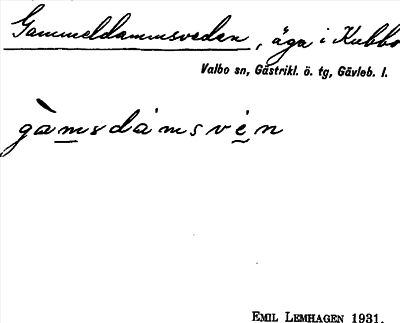 Gammeldammsveden, äga i Kubbo
Valbo sn, Gästrikl. ö. tg, Gävleb. l.
gàmsdàmsvén
EMIL LEMHAGEN 1931.